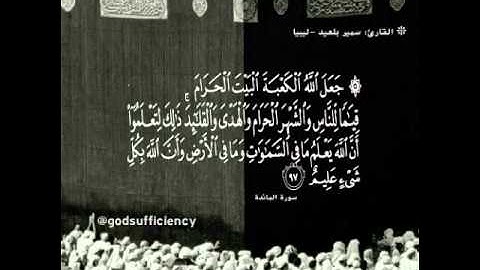 القارئ: سمير بلعيد - ليبيا
۞ جَعَلَ ٱللَّهُ ٱلْكَعْبَةَ ٱلْبَيْتَ ٱلْحَرَامَ
قِيَٰمًا لِّلنَّاسِ وَٱلشَّهْرَ ٱلْحَرَامَ وَٱلْهَدْىَ وَٱلْقَلَٰٓئِدَ ۚ ذَٰلِكَ لِتَعْلَمُوٓا۟
أَنَّ ٱللَّهَ يَعْلَمُ مَا فِى ٱلسَّمَٰوَٰتِ وَمَا فِى ٱلْأَرْضِ وَأَنَّ ٱللَّهَ بِكُلِّ
شَىْءٍ عَلِيمٌ ٩٧
سورة المائدة
@godsufficiency